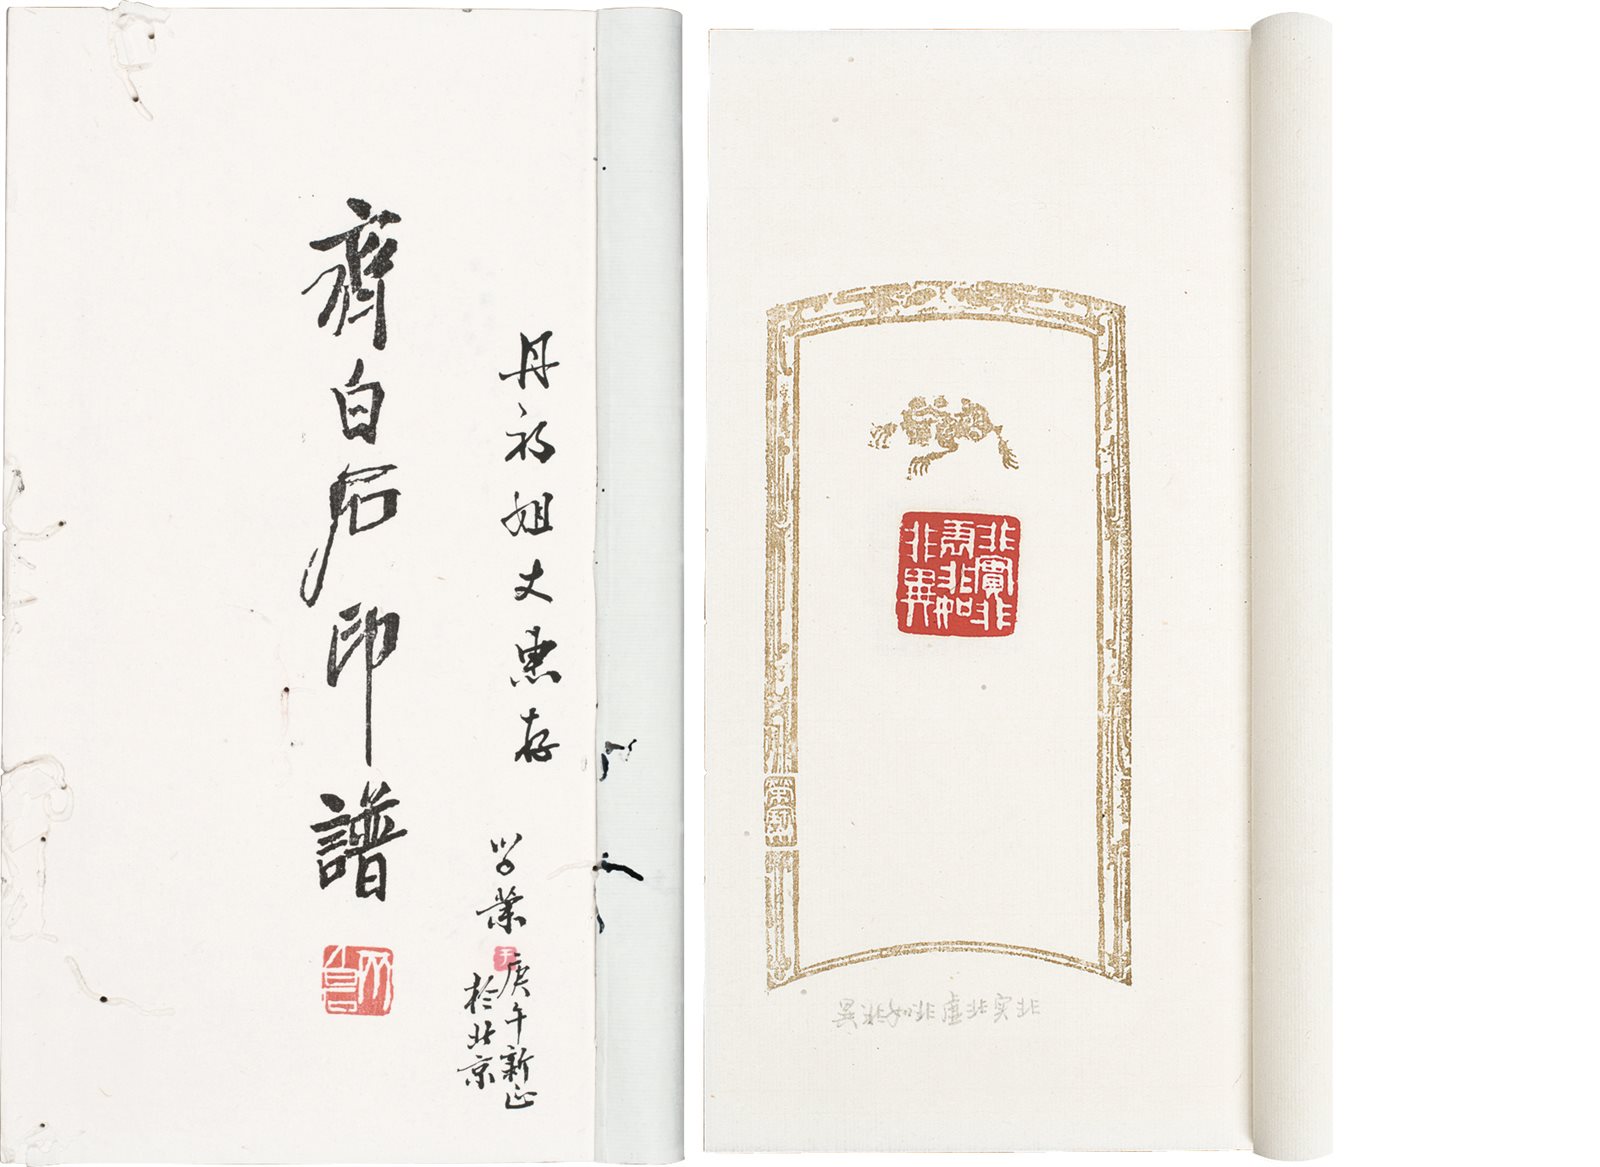 丹初姐丈惠存
学業
庚午新正
於北京
齊白石印譜
非實非虛非如非異
非实非虚非如非異